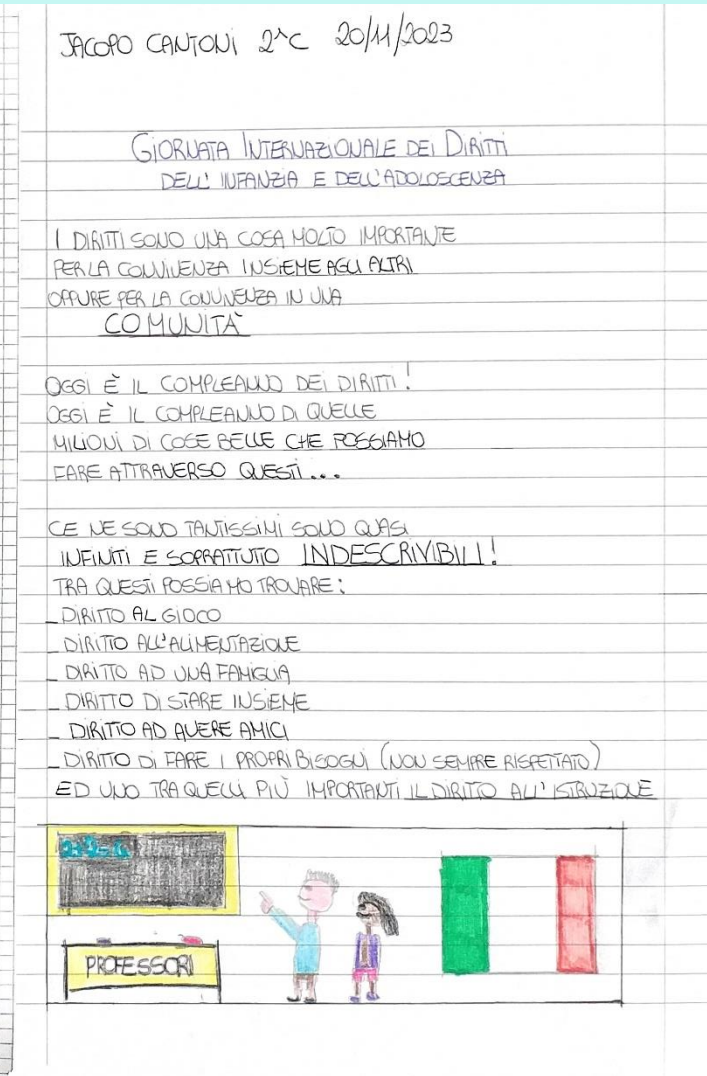 JACOPO CANTONI 2^C 20/11/2023
GIORNATA INTERNAZIONALE DEI DIRITTI
DELL' INFANZIA E DELL'ADOLOSCENZA
I DIRITTI SONO UNA COSA MOLTO IMPORTANTE
PER LA CONVIVENZA INSIEME AGLI ALTRI
OPPURE PER LA CONVINENZA IN UNA
COMUNITÀ
OGGI È IL COMPLEANNO DEI DIRITTI!
OGGI È IL COMPLEANNO DI QUELLE
MILIONI DI COSE BELLE CHE POSSIAMO
FARE ATTRAVERSO QUESTI...
CE NE SONO TANTISSIMI SONO QUASI
INFINITI E SOPRATTUTTO INDESCRIVIBILI!
TRA QUESTI POSSIAMO TROVARE:
_ DIRITTO AL GIOCO
_ DIRITTO ALL'ALIMENTAZIONE
_ DIRITTO AD UNA FAMIGLIA
_ DIRITTO DI STARE INSIEME
_ DIRITTO AD AVERE AMICI
_ DIRITTO DI FARE I PROPRI BISOGNI (NON SEMPRE RISPETTATO)
ED UNO TRA QUELLI PIÙ IMPORTANTI IL DIRITTO ALL' ISTRUZIONE
2+2=4
PROFESSORI